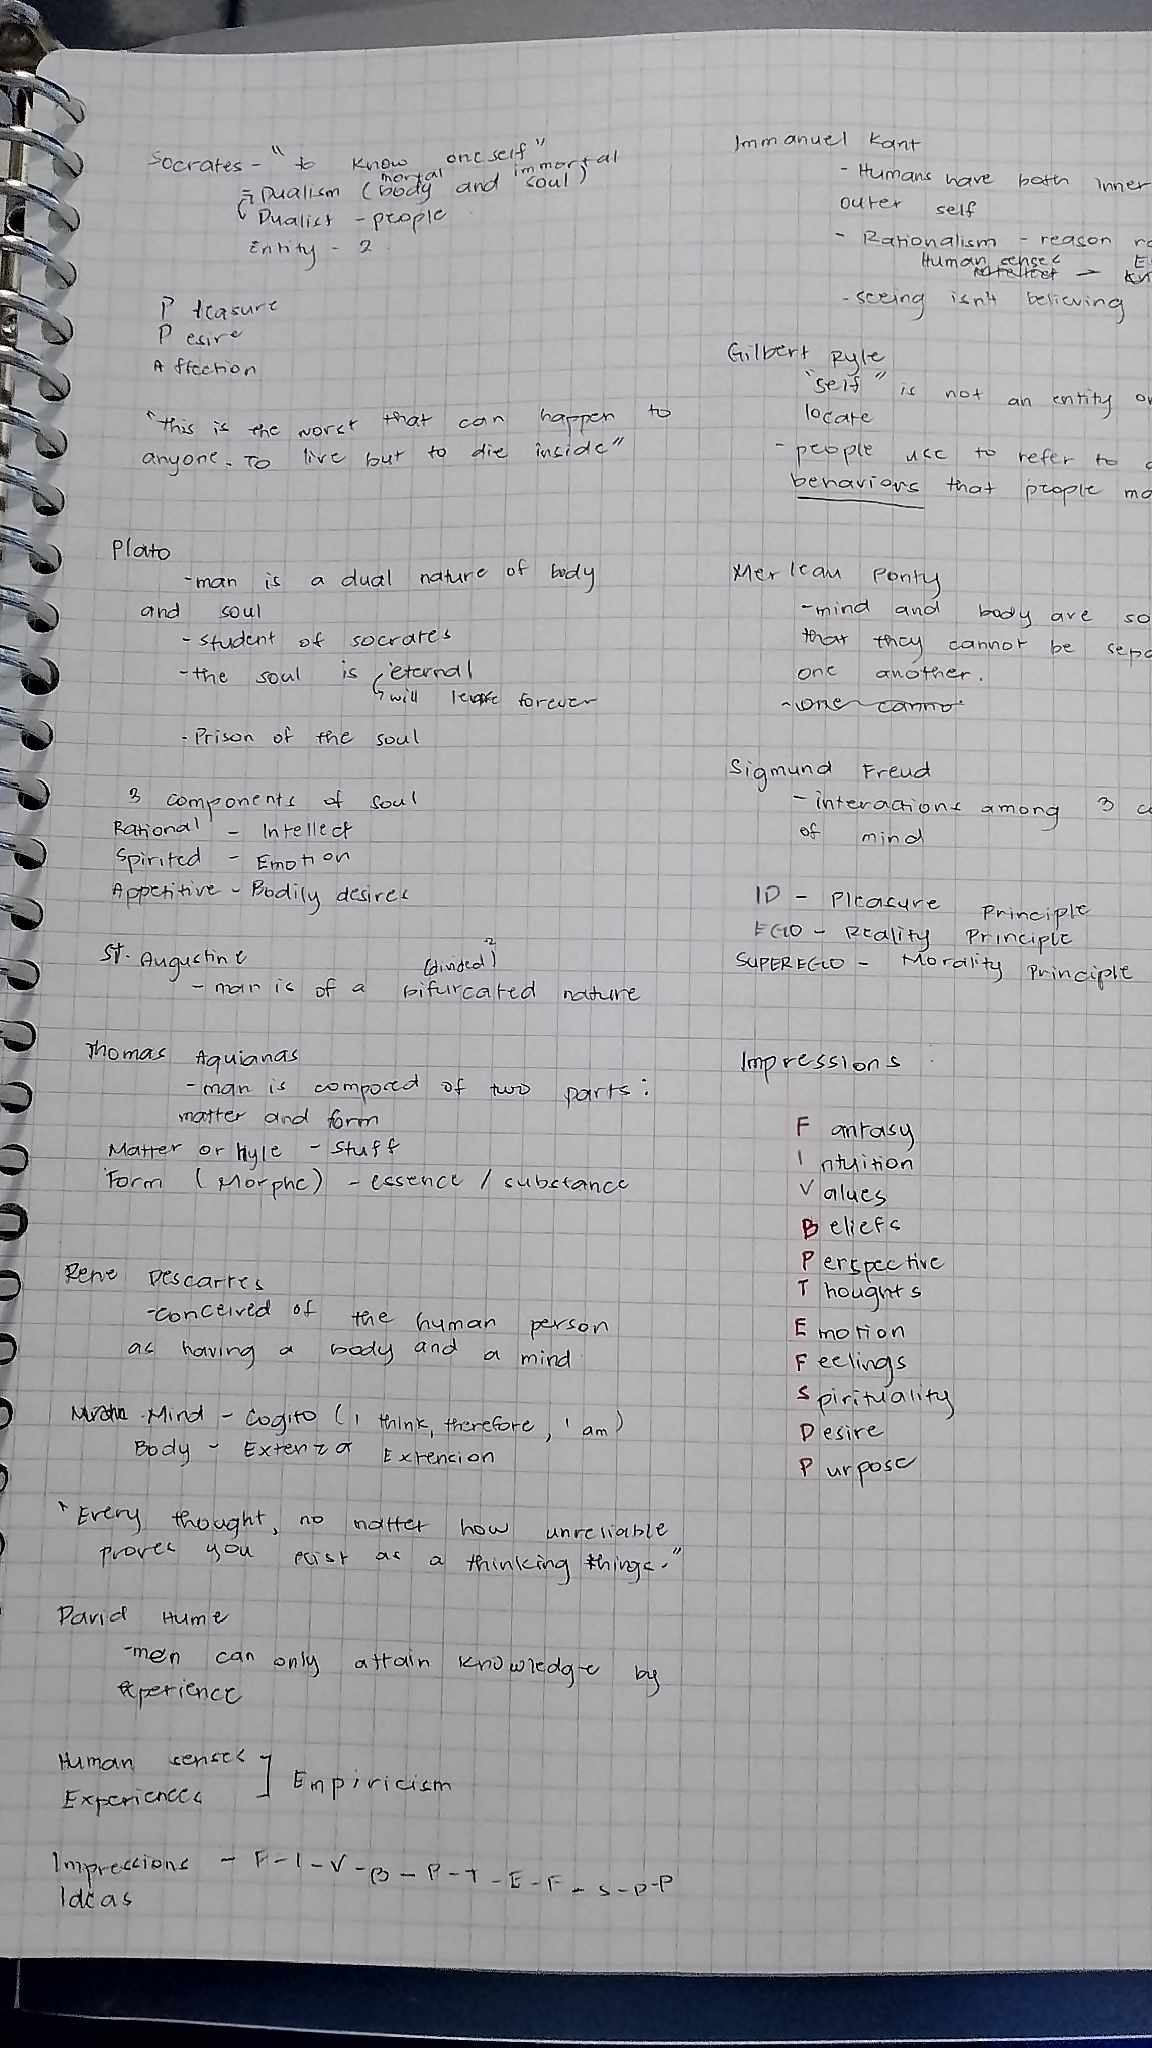 Socrates - "to know oneself"
mortal immortal
Dualism (body and soul)
Dualist - people
Entity - 2
P leasure
D esire
A ffection
"this is the worst that can happen to
anyone. To live but to die inside"
Plato
-man is a dual nature of body
and soul
- student of socrates
-the soul is eternal
will forever
- Prison of the soul
3 components of soul
Rational - Intellect
Spirited - Emotion
Appetitive - Bodily desires
St. Augustine
(divided) 2
- man is of a bifurcated nature
Thomas Aquianas
-man is composed of two parts:
matter and form
Matter or Hyle - Stuff
Form (Morphe) - essence / substance
Rene Descartes
-conceived of the human person
as having a body and a mind
Mind - Cogito (I think, therefore, I am)
Body - Extenza Extension
"Every thought, no matter how unreliable
proves you exist as a thinking things."
David Hume
-men can only attain knowledge by
experience
Human senses
Experiences ] Empiricism
Impressions - F-I-V-B-P-T-E-F-S-D-P
Ideas
Immanuel Kant
- Humans have both inner
outer self
- Rationalism - reason
Human senses
- seeing isn't believing
Gilbert Ryle
"self" is not an entity
locate
- people use to refer to
behaviors that people
Merleau Ponty
-mind and body are so
that they cannot be
one another.
-one cannot
Sigmund Freud
- interactions among 3
of mind
ID - Pleasure Principle
EGO - Reality Principle
SUPEREGO - Morality Principle
Impressions
F antasy
I ntuition
V alues
B eliefs
P erspective
T houghts
E motion
F eelings
S pirituality
D esire
P urpose